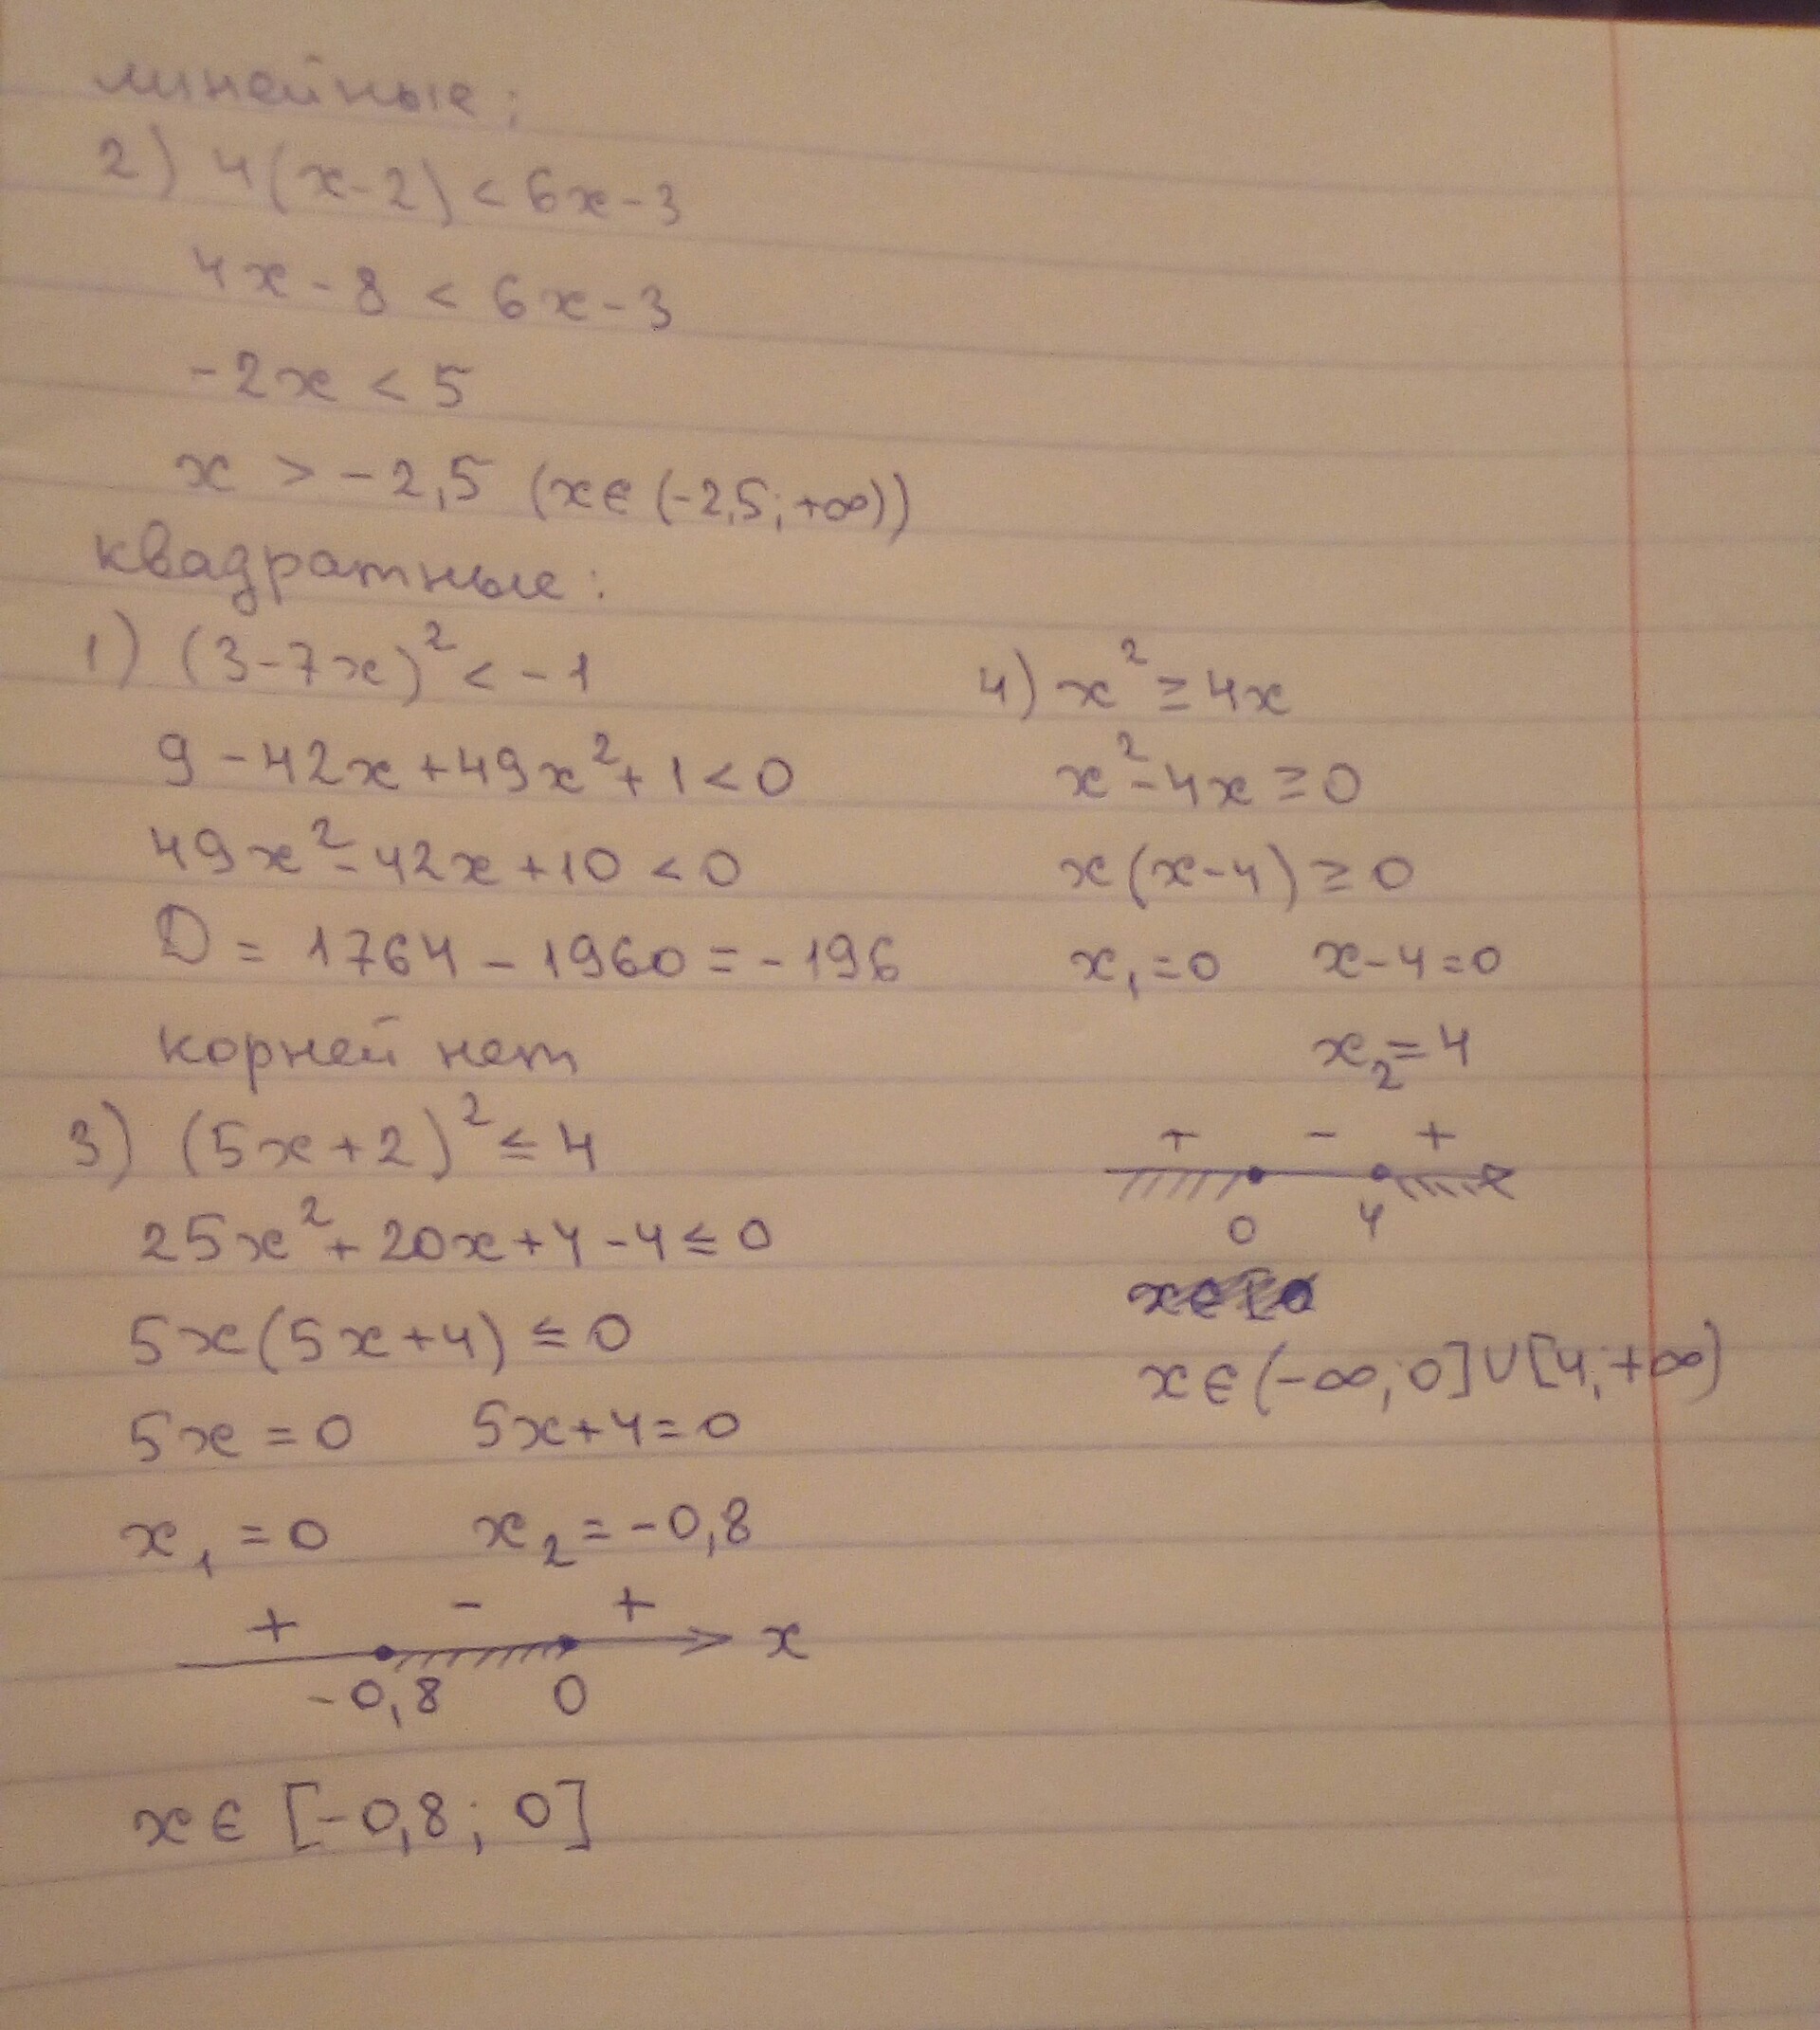 линейные:
2) 4(x-2) < 6x-3
4x - 8 < 6x - 3
-2x < 5
x > -2,5 (x∈(-2,5; +∞))
квадратные:
1) (3-7x)² < -1
9 - 42x + 49x² + 1 < 0
49x² - 42x + 10 < 0
D = 1764 - 1960 = -196
корней нет
3) (5x+2)² ≤ 4
25x² + 20x + 4 - 4 ≤ 0
5x(5x+4) ≤ 0
5x = 0 5x+4=0
x₁ = 0 x₂ = -0,8
+ - +
x
-0,8 0
x ∈ [-0,8; 0]
4) x² ≥ 4x
x² - 4x ≥ 0
x(x-4) ≥ 0
x₁ = 0 x-4=0
x₂ = 4
+ - +
0 4
x∈(-∞; 0]∪[4; +∞)